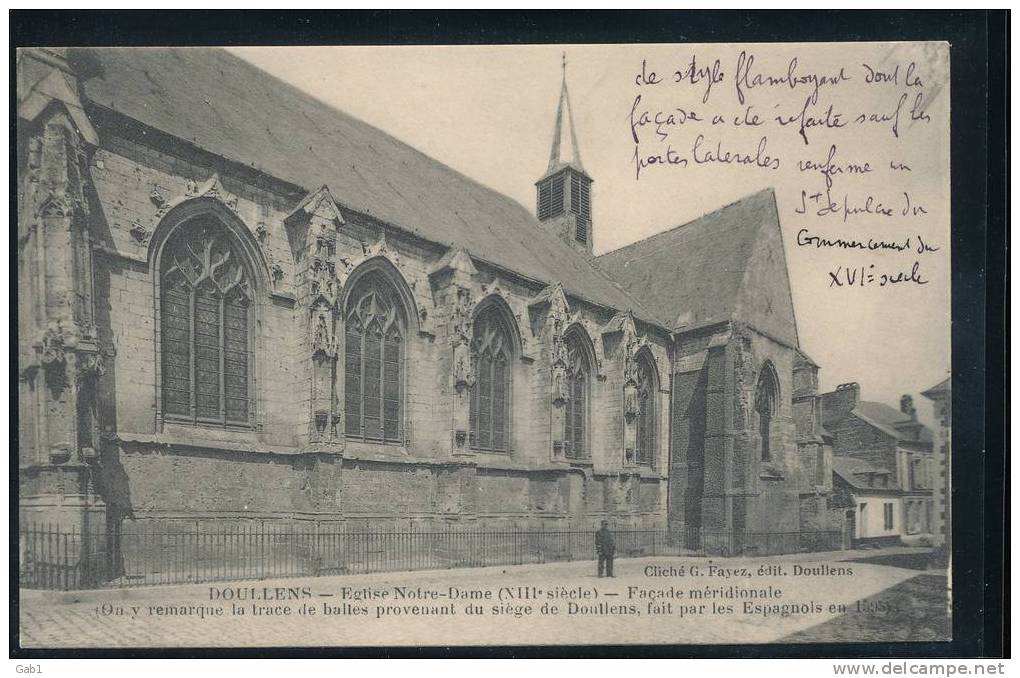 de style flamboyant dont la
façade a été refaite sauf les
portes laterales renferme un
St sepulcre du
Commercement du
XVIè siecle
Cliché G. Fayez, édit. Doullens
DOULLENS — Eglise Notre-Dame (XIIIe siècle) — Façade méridionale
(On y remarque la trace de balles provenant du siège de Doullens, fait par les Espagnols en 1595).
Gab1
www.delcampe.net